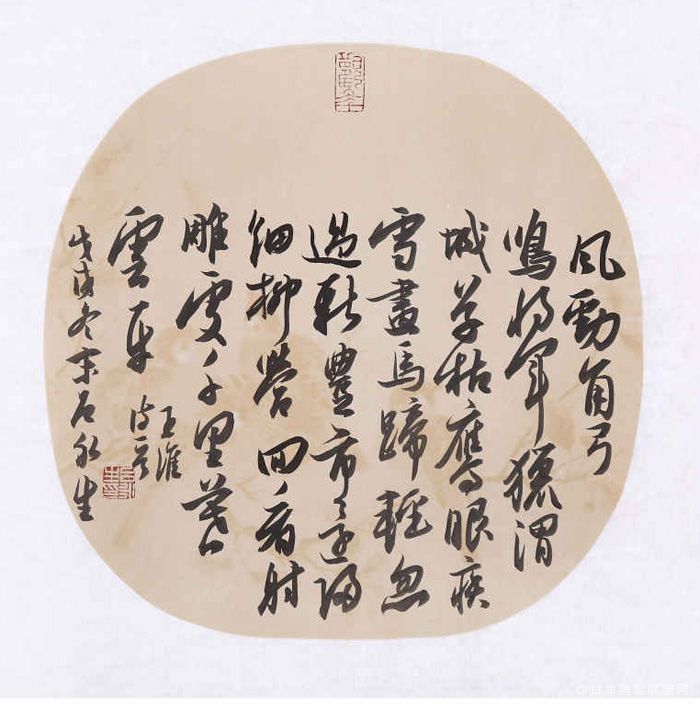 风勁角弓
鳴将軍獵渭
城草枯鷹眼疾
雪盡馬蹄輕忽
過新豐市還歸
細柳營回看射
雕處千里暮
雲平
王維
詩
戊戌冬末石永生